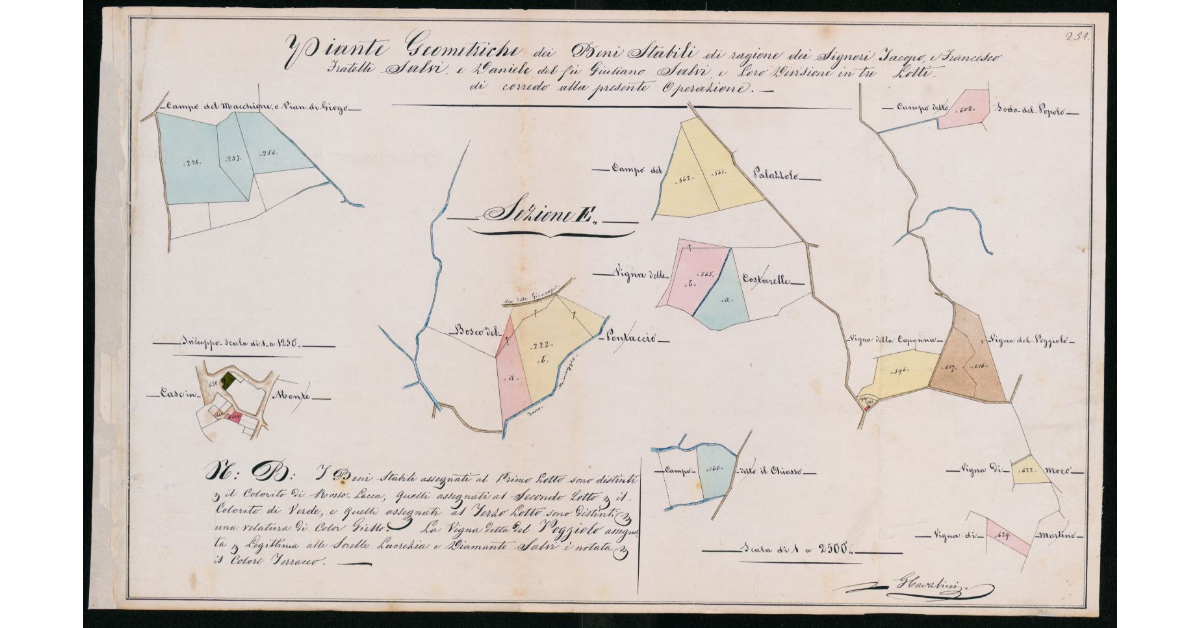 251.
Piante Geometriche dei Beni Stabili di ragione dei Signori Jacopo, e Francesco
Fratelli Salvi, e Daniele del fù Giuliano Salvi, e Loro Divisione in tre Lotti
di corredo alla presente Operazione.
Campo del Macchione, o Pian di Giogo
.238. .237. .236.
Campo detto .608. Sodo del Popolo
Campo del .562. .561. Palazzolo
Sezione E.
Vigna delle .565. Costarelle
b. a.
Bosco del Pontaccio
.222.
b.
a.
Vigna della Capanna
Vigna del Poggiolo
.596. .617. .616.
Sviluppo Scala di 1. a 1250.
Case in Monte
Campo .560. detto il Chiasso
Vigna di .622. Moco
Vigna di .628. Martino
N: B: I Beni Stabili assegnati al Primo Lotto sono distinti
il Colorito di Rosso Lacca, quelli assegnati al Secondo Lotto il
Colorito di Verde, e quelli assegnati al Terzo Lotto sono distinti
una velatura di Color Giallo. La Vigna detta del Poggiolo assegna
ta Legittima alle Sorelle Lucrezia e Diamante Salvi è notata
il Colore Terraceo.
Scala di 1 a 2500.